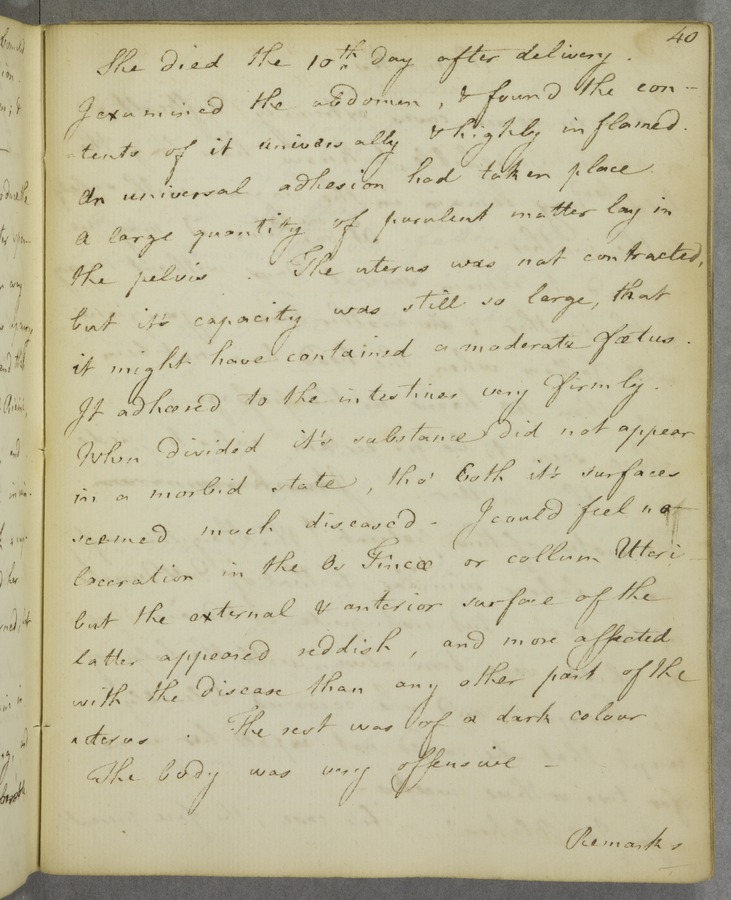 40
She died the 10th day after delivery.
I examined the abdomen, & found the con-
tents of it universally & highly inflamed.
An universal adhesion had taken place.
A large quantity of purulent matter lay in
the pelvis. The uterus was not contracted,
but it's capacity was still so large, that
it might have contained a moderate fœtus.
It adhered to the intestines very firmly.
When divided it's substance did not appear
in a morbid state, tho' both it's surfaces
seemed much diseased - I could feel no
laceration in the Os Tincæ or collum Uteri -
but the external & anterior surface of the
latter appeared reddish, and more affected
with the disease than any other part of the
uterus. The rest was of a dark colour
The body was very offensive -
Remarks